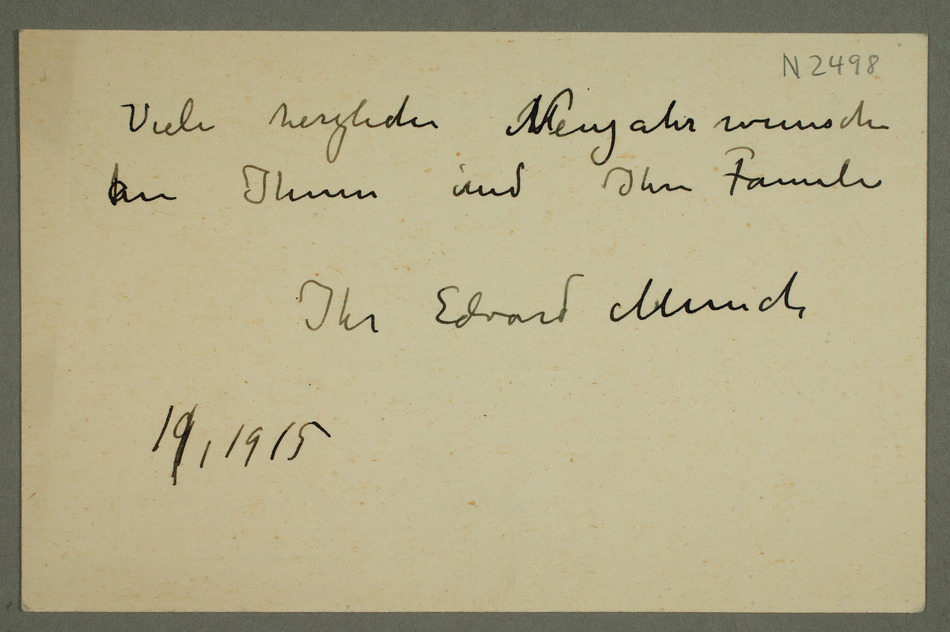 N 2498
Viele herzliche Neujahrwunsche
an Ihnen und Ihre Familie
Ihr Edvard Munch
1/1 1915